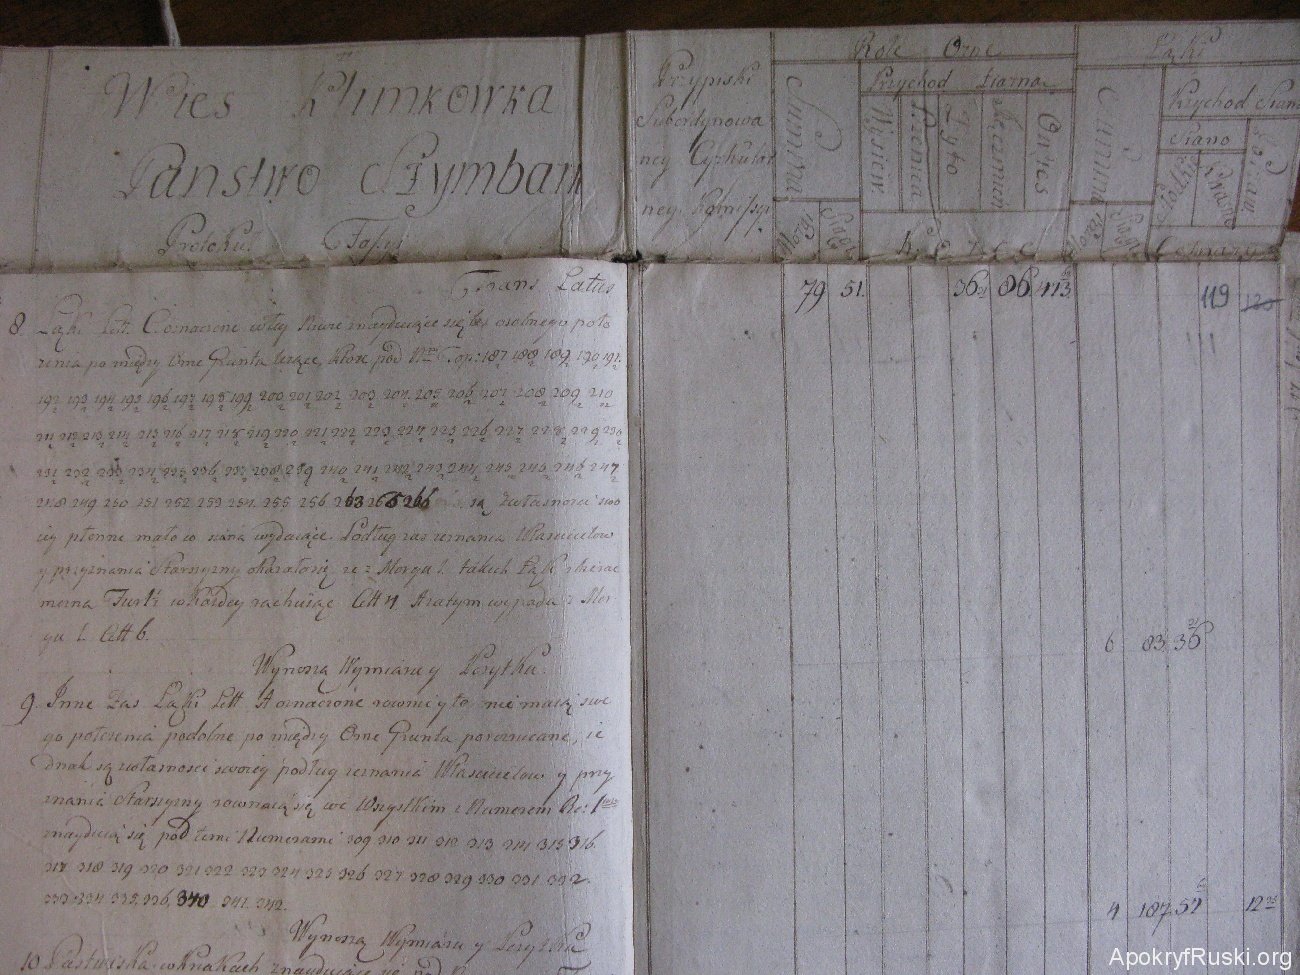 Wieś Klimkowka
Panstwo Szymbark
Protokuł
Przypiski
Subordynowa
ney Cyrkular
ney Komissyi
Role Orne
Summa
Przychod Ziarna
Wysiew
Pszenica
Zyto
Jęczmień
Owies
Morgi
Sążn
Łąki
Summa
Przychod Siana
Siano
Słodkie
Kwaśne
Potraw
Cetnary
Trans Latus
79 51 36 86 113 119
8 Łąki Litt. C oznaczone w tey Niwie znayduiące się bez osobnego poło
żenia po między Orne Grunta leżące, które pod Nro Top: 187 188 189 190 191
192 193 194 195 196 197 198 199 200 201 202 203 204 205 206 207 208 209 210
211 212 213 214 215 216 217 218 219 220 221 222 223 224 225 226 227 228 229 230
231 232 233 234 235 236 237 238 239 240 241 242 243 244 245 246 247
248 249 250 251 252 253 254 255 256 263 265 266 są z własności swo
iey płonne mało co siana wydaiące. Podług zaś zeznania Właścicielow
y przyznania Starszyzny okazało się że z Morgu 1. takich Łąk zbierać
można Furk w każdey rachuiąc Cett 4 A zatym wypada z Mor
gu 1. Cett 6.
Wynoszą Wymiaru y Pożytku 6 83 36
9. Inne zas Łąki Litt A oznaczone rownie y to nie maią swe
go położenia podobne po między Orne Grunta porozrzucane, ie
dnak są z własności swoiey podług zeznania Właścicielow y przy
znania Starszyzny rownaią się we Wszystkim z Numerem
znayduią się pod temi Numerami 309 310 311 312 313 314 315 316
317 318 319 320 321 322 323 324 325 326 327 328 329 330 331 332
333 334 335 336 340 341 342.
Wynoszą Wymiaru y Pożytku 4 187 57 12
10 Pastwiska w Krzakach znayduiące się pod
ApokryfRuski.org